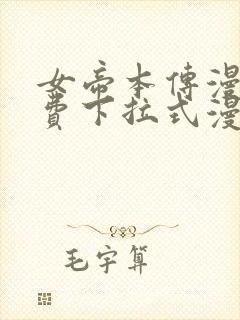 女帝本傳漫
費下拉式漫
毛宇算